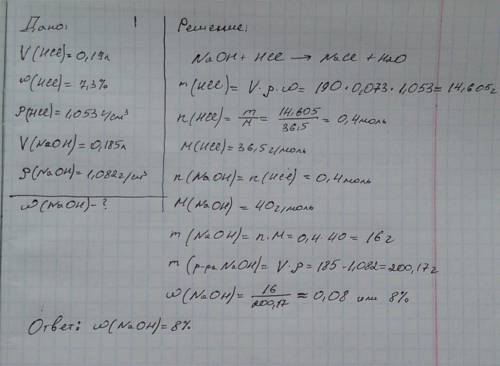 Дано:
V(HCl)=0,19л
ω(HCl)=7,3%
ρ(HCl)=1,053г/см³
V(NaOH)=0,185л
ρ(NaOH)=1,082г/см³
ω(NaOH)-?
1
Решение:
NaOH + HCl → NaCl + H2O
m(HCl)= V·ρ·ω= 190·0,073·1,053= 14,605г
n(HCl)= m/M = 14,605/36,5 = 0,4моль
M(HCl)=36,5г/моль
n(NaOH)= n(HCl)= 0,4моль
M(NaOH)=40г/моль
m(NaOH)= n·M= 0,4·40= 16г
m(р-ра NaOH)= V·ρ=185·1,082=200,17г
ω(NaOH)= 16/200,17 ≈ 0,08 или 8%
Ответ: ω(NaOH)=8%